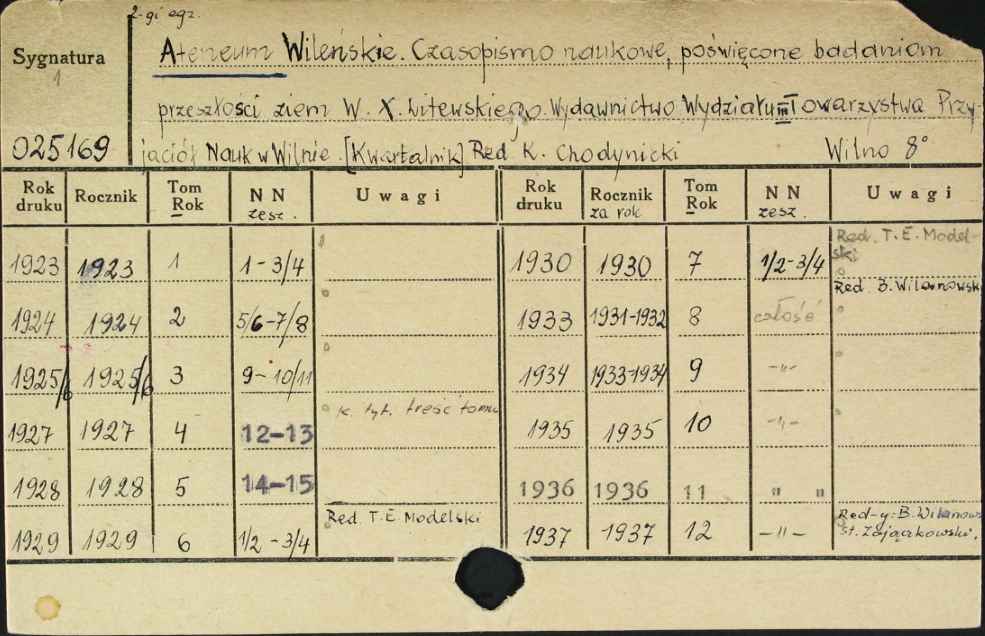 2-gi egz.
Sygnatura
1
025169
Ateneum Wileńskie. Czasopismo naukowe, poświęcone badaniom
przeszłości ziem W. X. Litewskiego. Wydawnictwo Wydziału III Towarzystwa Przy-
jaciół Nauk w Wilnie. [Kwartalnik] Red K. Chodynicki Wilno 8°
Rok druku Rocznik Tom Rok N N zesz. Uwagi Rok druku Rocznik za rok Tom Rok N N zesz. Uwagi
1923 1923 1 1-3/4 1930 1930 7 1/2-3/4 Red. T. E. Model-
ski
Red B. Wilanowski
1924 1924 2 5/6-7/8 1933 1931-1932 8 całość
1925/6 1925/6 3 9-10/11 1934 1933-1934 9 -"-
k. tyt. treść tomu
1927 1927 4 12-13 1935 1935 10 -"-
1928 1928 5 14-15 1936 1936 11 " "
1929 1929 6 1/2-3/4 Red. T. E. Modelski 1937 1937 12 -"- Red-y: B. Wilanows
St. Zajączkowski.